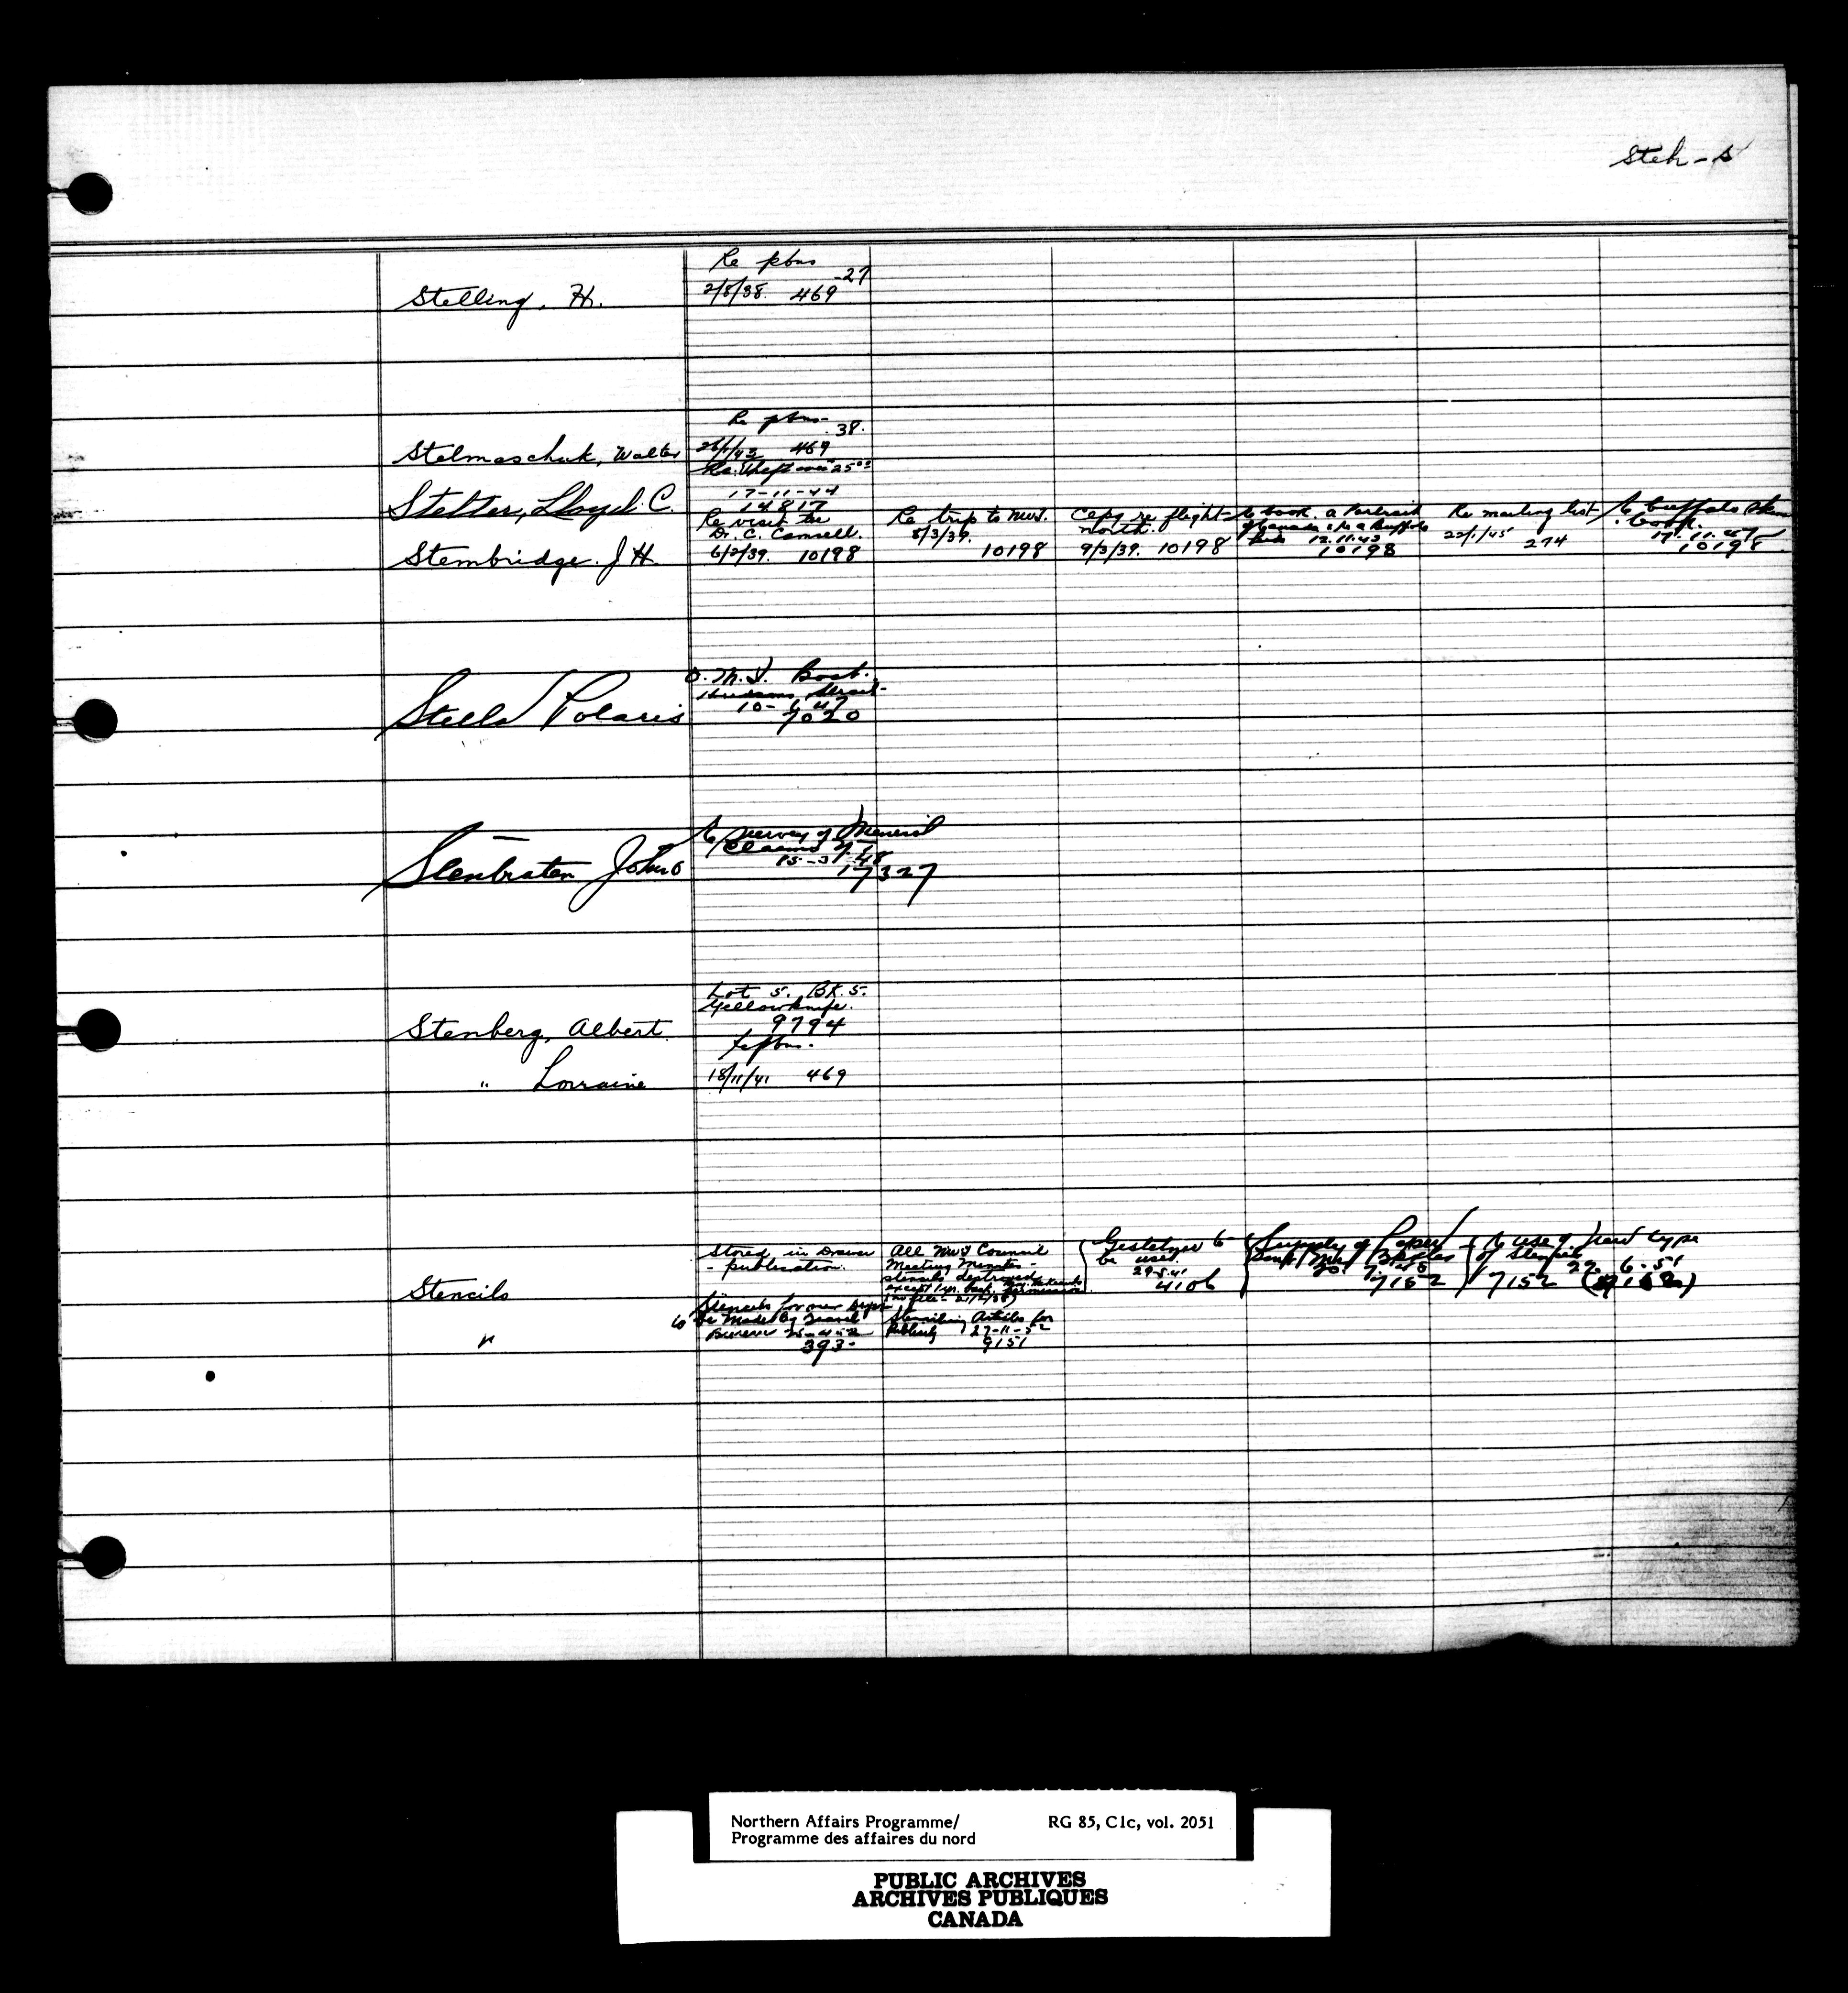 Steh-s
Re pbns
Stelling, H. 2/8/38. 469-27
Re pbns
Stelmaschuk, Walter 26/1/43 469-38.
Re. Theft over 25⁰⁰
17-11-44
Stelter, Lloyd. C. 14817
Re visit to Dr. C. Camsell.
Stembridge. J H. 6/2/39. 10198
Re trip to NWT.
8/3/39.
10198
Cepg re flight
north.
9/3/39. 10198
book a Portrait
of Canada
12.11.43
10198
Re mailing list
22/1/45
274
buffalo
book.
17.11.47
10198
O. M.S. Boat.
Hudsons Strait-
10-6-47
Stella Polaris 7020
Survey of Mineral
Claims
15-3-48
Stenbraten John 17327
Lot 5. BK. 5.
Yellowknife.
Stenberg, Albert. 9794
" Lorraine 18/11/41 469
Stored in Drawer
- publication.
Stencils
All NWT Council
Meeting Minutes -
stencils destroyed
Gestetner to
be used
29-5-41
4106
Supply of Paper
7152
use of new type
of Stencil
22-6-51
7152 (7152)
Stencils for our Dept
to be Made by Travel
Bureau 25-4-52
393-
Stenciling Articles for
Publicity 27-11-52
9151
Northern Affairs Programme/ RG 85, C1c, vol. 2051
Programme des affaires du nord
PUBLIC ARCHIVES
ARCHIVES PUBLIQUES
CANADA